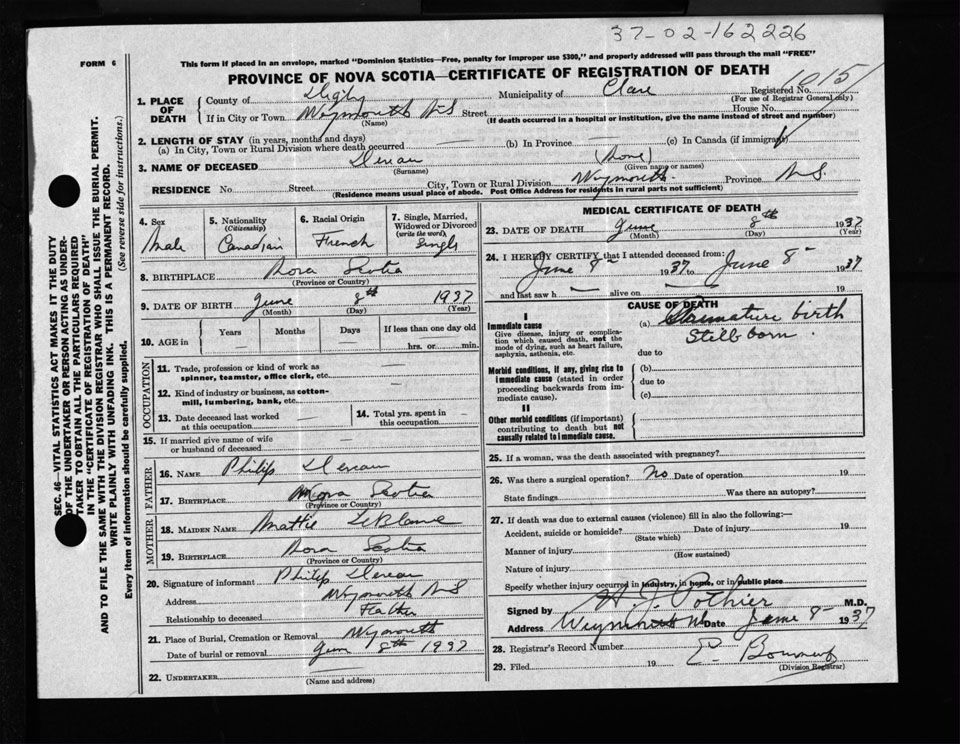 37-02-162226
FORM 6
This form if placed in an envelope, marked "Dominion Statistics—Free, penalty for improper use $300," and properly addressed will pass through the mail "FREE"
PROVINCE OF NOVA SCOTIA—CERTIFICATE OF REGISTRATION OF DEATH
1015
1. PLACE OF DEATH
County of Digby Municipality of Clare Registered No.
(For use of Registrar General only)
If in City or Town Weymouth N S Street House No.
(Name) (If death occurred in a hospital or institution, give the name instead of street and number)
2. LENGTH OF STAY (in years, months and days)
(a) In City, Town or Rural Division where death occurred — (b) In Province — (c) In Canada (if immigrant)
3. NAME OF DECEASED (None)
(Surname) (Given name or names)
RESIDENCE No. Street City, Town or Rural Division Weymouth Province N S.
(Residence means usual place of abode. Post Office Address for residents in rural parts not sufficient)
4. Sex
Male
5. Nationality
(Citizenship)
Canadian
6. Racial Origin
French
7. Single, Married, Widowed or Divorced
(write the word)
Single
8. BIRTHPLACE Nova Scotia
(Province or Country)
9. DATE OF BIRTH June 8th 1937
(Month) (Day) (Year)
10. AGE in
Years Months Days If less than one day old
— — — hrs. or min.
OCCUPATION
11. Trade, profession or kind of work as
spinner, teamster, office clerk, etc. —
12. Kind of industry or business, as cotton-
mill, lumbering, bank, etc. —
13. Date deceased last worked
at this occupation —
14. Total yrs. spent in
this occupation —
15. If married give name of wife
or husband of deceased —
FATHER
16. NAME Philip
17. BIRTHPLACE Nova Scotia
(Province or Country)
MOTHER
18. MAIDEN NAME Mattie LeBlanc
19. BIRTHPLACE Nova Scotia
(Province or Country)
20. Signature of informant Philip
Address Weymouth N S
Relationship to deceased Father
21. Place of Burial, Cremation or Removal Weymouth
Date of burial or removal June 8th 1937
22. UNDERTAKER
(Name and address)
MEDICAL CERTIFICATE OF DEATH
23. DATE OF DEATH June 8th 1937
(Month) (Day) (Year)
24. I HEREBY CERTIFY that I attended deceased from:
June 8 1937 to June 8 1937
and last saw h — alive on — 19
CAUSE OF DEATH
I
Immediate cause
Give disease, injury or complication which caused death, not the mode of dying, such as heart failure, asphyxia, asthenia, etc.
(a) Premature birth
Still born
due to
Morbid conditions, if any, giving rise to immediate cause (stated in order proceeding backwards from immediate cause).
(b)
due to
(c)
II
Other morbid conditions (if important) contributing to death but not causally related to immediate cause.
25. If a woman, was the death associated with pregnancy?
26. Was there a surgical operation? No Date of operation 19
State findings Was there an autopsy?
27. If death was due to external causes (violence) fill in also the following:—
Accident, suicide or homicide? Date of injury 19
(State which)
Manner of injury
(How sustained)
Nature of injury
Specify whether injury occurred in industry, in home, or in public place
Signed by H. J. Pothier M.D.
Address Weymouth NS Date June 8 1937
28. Registrar's Record Number
29. Filed 19 E.
(Division Registrar)
SEC. 46—VITAL STATISTICS ACT MAKES IT THE DUTY
OF THE UNDERTAKER OR PERSON ACTING AS UNDER-
TAKER TO OBTAIN ALL THE PARTICULARS REQUIRED
IN THE "CERTIFICATE OF REGISTRATION OF DEATH"
AND TO FILE THE SAME WITH THE DIVISION REGISTRAR WHO SHALL ISSUE THE BURIAL PERMIT.
WRITE PLAINLY WITH UNFADING INK. THIS IS A PERMANENT RECORD.
Every item of information should be carefully supplied. (See reverse side for instructions.)